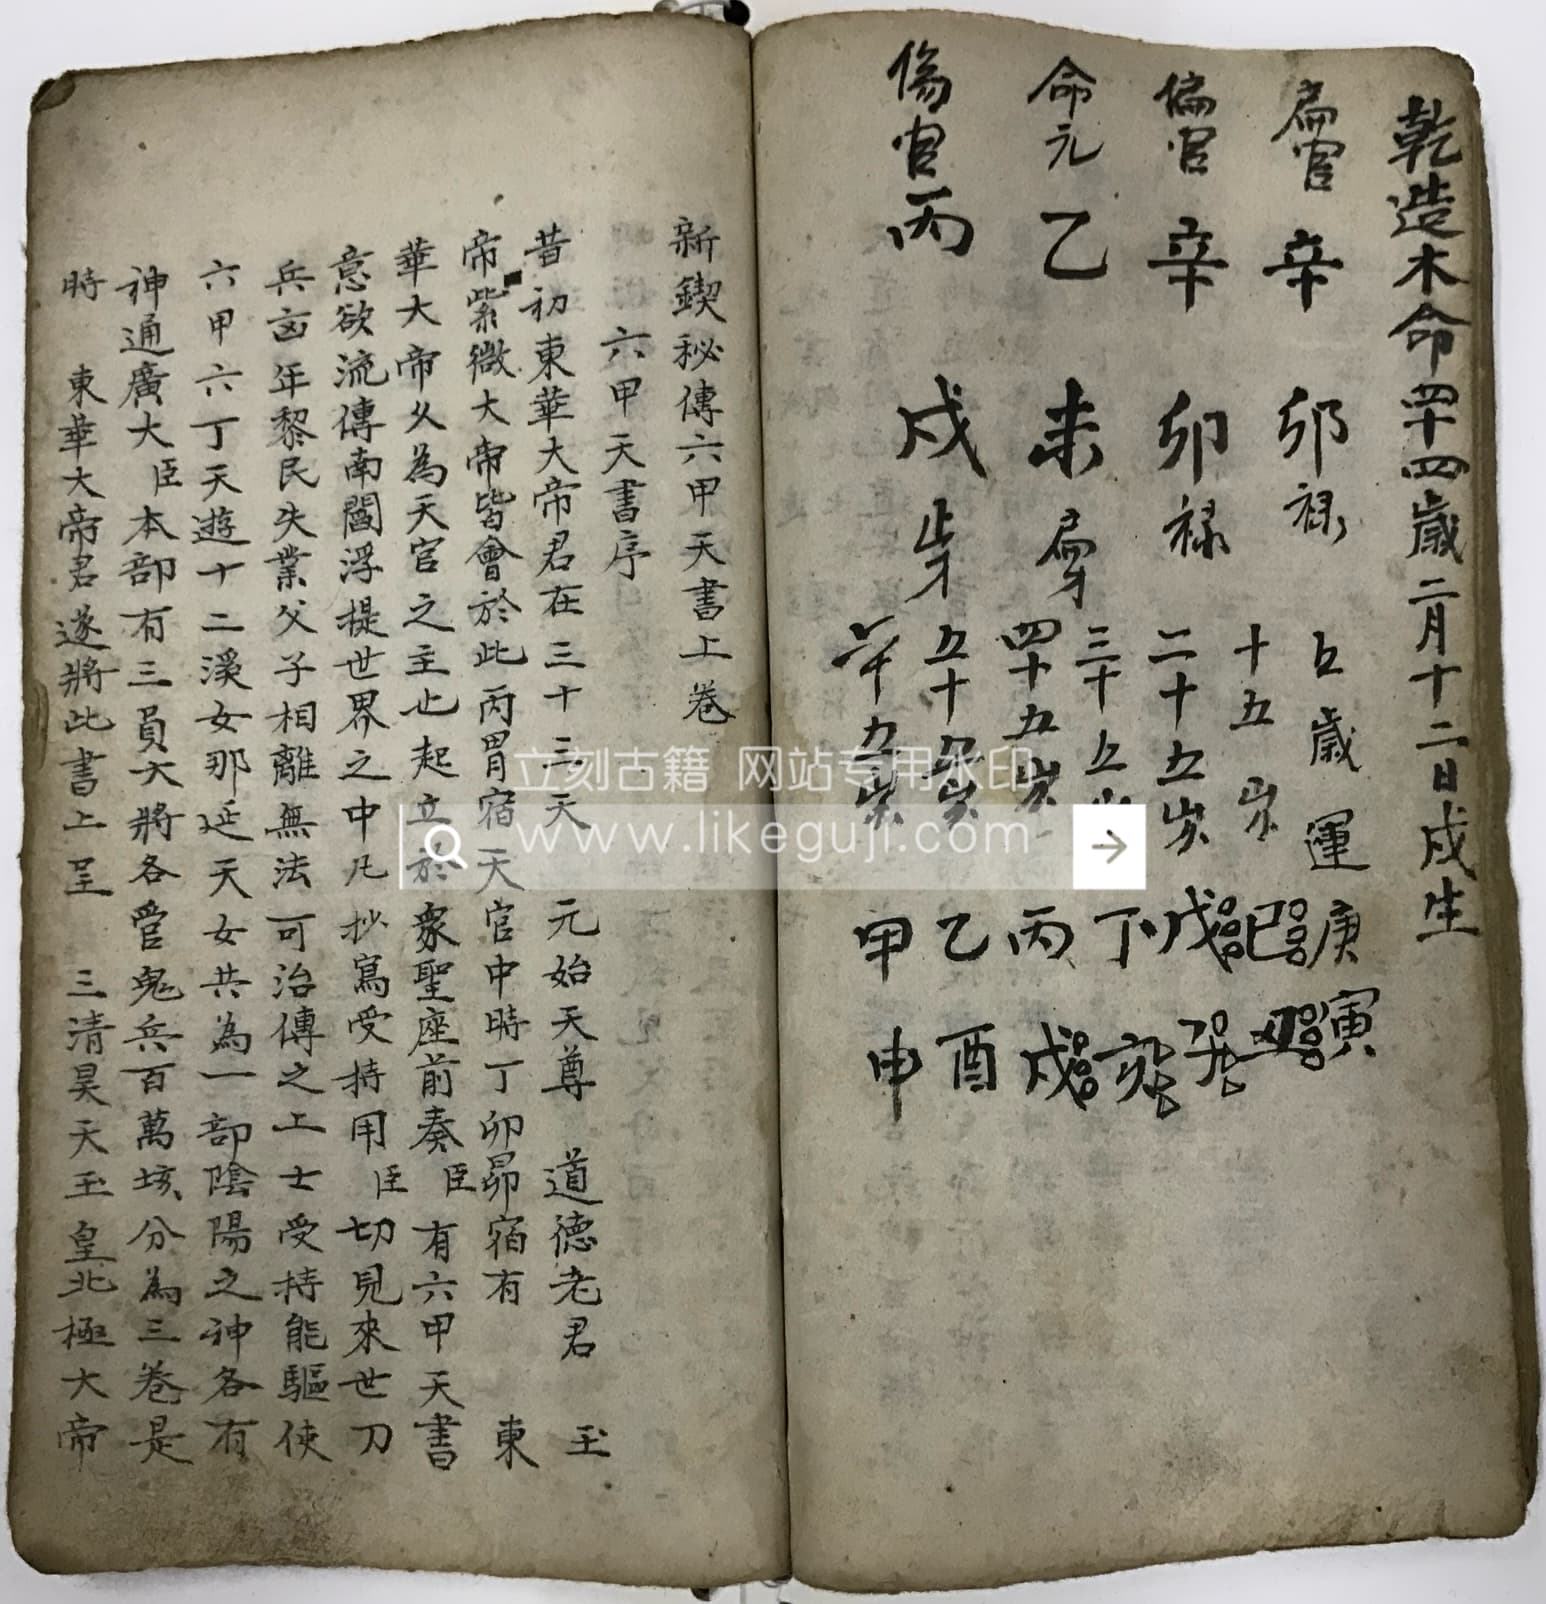 乾造木命四十四歲二月十二日戍生
扁官 辛 卯 禄
偏官 辛 卯 禄
命元 乙 未 扁才
傷官 丙 戍 才
五歲運 庚寅
十五岁
二十五岁 戊
三十五 丁
四十五岁 丙戍
五十五岁 乙酉
六十五岁 甲申
新鍥秘傳六甲天書上卷
六甲天書序
昔初東華大帝君在三十三天 元始天尊 道德老君 玉
帝紫微大帝皆會於此丙胃宿天官中時丁卯昴宿有 東
華大帝久為天官之主也起立於衆聖座前奏臣有六甲天書
意欲流傳南閻浮提世界之中凡抄寫受持用臣切見來世刀
兵㐫年黎民失業父子相離無法可治傳之上士受持能驅使
六甲六丁天遊十二溪女那延天女共為一部陰陽之神各有
神通廣大臣本部有三員大將各管鬼兵百萬垓分為三卷是
時 東華大帝君遂將此書上呈 三清昊天玉皇北極大帝
立刻古籍 网站专用水印
www.likeguji.com